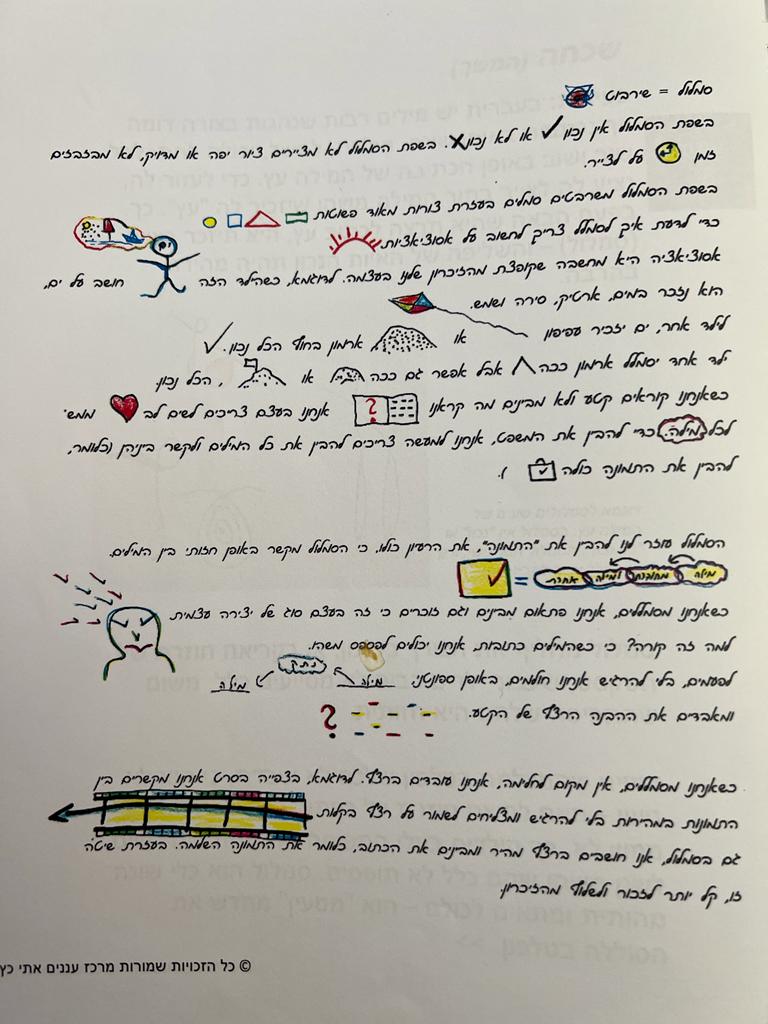 סמלול = שירבוט
בשפת הסמלול אין נכון ✓ או לא נכון X. בשפת הסמלול לא מציירים ציור יפה או מדויק, לא מבזבזים
זמן על לצייר.
בשפת הסמלול משרבטים סמלים בעזרת צורות מאוד פשוטות
כדי לדעת איך לסמלל צריך לחשוב על אסוציאציות
אסוציאציה היא מחשבה שקופצת מהזיכרון שלנו בעצמה. לדוגמא, כשהילד הזה חושב על ים,
הוא נזכר במים, ארטיק, סירה ושמש.
לילד אחר, ים יזכיר עפיפון או ארמון בחוף הכל נכון. ✓
ילד אחד יסמלל ארמון ככה אבל אפשר גם ככה או , הכל נכון
כשאנחנו קוראים קטע ולא מבינים מה קראנו ? אנחנו בעצם צריכים לשים לב ממש
לכל מילה. כדי להבין את המשפט, אנחנו למעשה צריכים להבין את כל המילים ולקשר ביניהן (כלומר,
להבין את התמונה כולה ).
הסמלול עוזר לנו להבין את "התמונה", את הרעיון כולו, כי הסמלול מקשר באופן חזותי בין המילים.
מילה מחוברת למילה אחרת =
כשאנחנו מסמללים, אנחנו פתאום מבינים וגם זוכרים כי זה בעצם סוג של יצירה עצמית
למה זה קורה? כי כשהמילים כתובות, אנחנו יכולים לפספס משהו.
לפעמים, בלי להרגיש אנחנו חולמים, באופן ספונטני. מילה נתק מילה
ומאבדים את ההבנה הרצף של הקטע. ?
כשאנחנו מסמללים, אין מקום לחלימה, אנחנו עובדים ברצף. לדוגמא, בצפייה בסרט אנחנו מקשרים בין
התמונות במהירות בלי להרגיש ומצליחים לשמור על רצף בקלות
גם בסמלול, אנו חושבים ברצף מהיר ומבינים את הכתוב, כלומר את התמונה השלמה. בעזרת שיטה
זו, קל יותר לזכור ולשלוף מהזיכרון
© כל הזכויות שמורות מרכז עננים אתי כץ